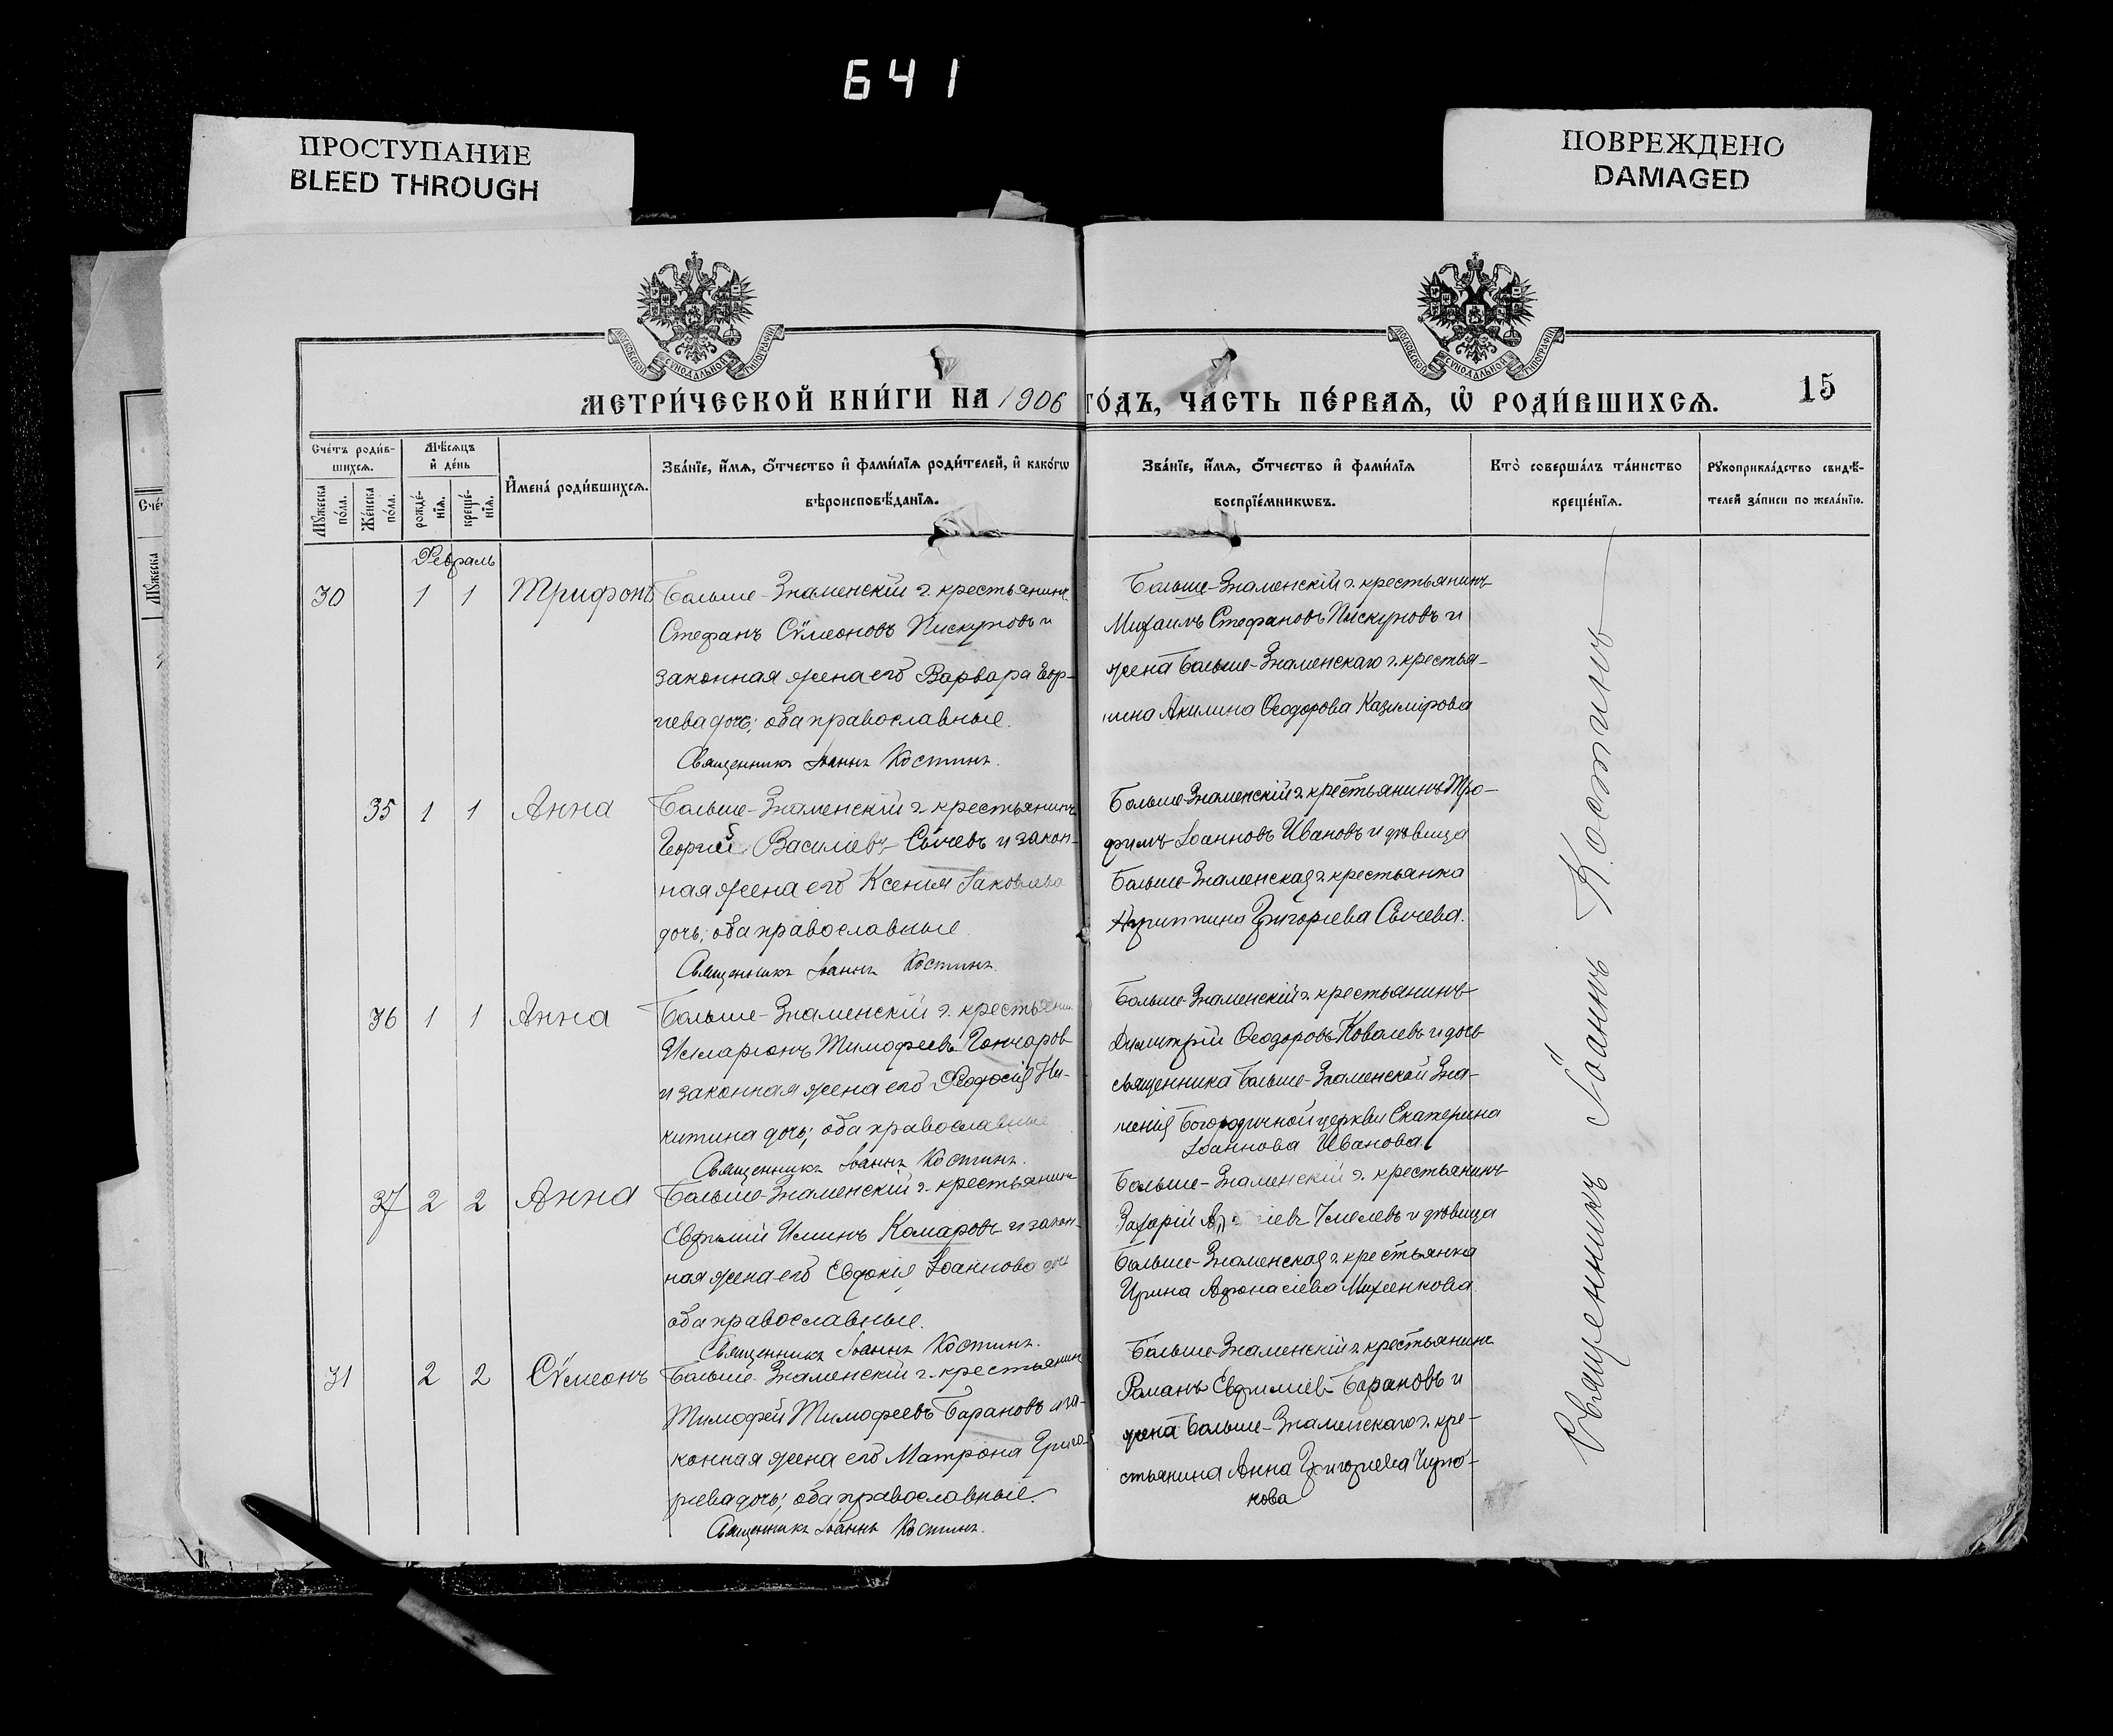 641
ПРОСТУПАНИЕ
BLEED THROUGH
ПОВРЕЖДЕНО
DAMAGED
МОСКОВСКОЙ СУНОДАЛЬНОЙ ТИПОГРАФІИ
МОСКОВСКОЙ СУНОДАЛЬНОЙ ТИПОГРАФІИ
МЕТРИ́ЧЕСКОЙ КНИ́ГИ НА 1906 ГО́ДЪ, ЧА́СТЬ ПЕ́РВАѦ, Ѡ РОДИ́ВШИХСѦ.
15
Сче́тъ роди́в-
шихсѧ.
Мѣ́сѧцъ
и де́нь
Мꙋжеска
по́ла.
Же́нска
по́ла.
рожде́-
нїѧ.
креще́-
нїѧ.
Имена́ роди́вшихсѧ.
Зва́нїе, и́мѧ, о́тчество и фами́лїѧ роди́телей, и како́гѡ
вѣроисповѣ́данїѧ.
Зва́нїе, и́мѧ, о́тчество и фами́лїѧ
воспрїе́мникѡвъ.
Кто̀ соверша́лъ та́инство
креще́нїѧ.
Рꙋкоприкла́дство свидѣ́-
телей за́писи по жела́нїю.
Сче́
Мꙋжеска
Февраль
30 1 1 Трифонъ
Больше-Знаменскій г. крестьянинъ
Стефанъ Сѵмеоновъ Пискуновъ и
законная жена его Варвара Геор-
гіева дочь; оба православные.
Священникъ Іоаннъ Костинъ.
Больше-Знаменскій г. крестьянинъ
Михаилъ Стефановъ Пискуновъ и
жена Больше-Знаменскаго г. крестья-
нина Акилина Ѳеодорова Казимірова
35 1 1 Анна
Больше-Знаменскій г. крестьянинъ
Георгій Василіевъ Сычевъ и закон-
ная жена его Ксенія Іаковлева
дочь; оба православные
Священникъ Іоаннъ Костинъ.
Больше-Знаменскій г. крестьянинъ Тро-
фимъ Іоанновъ Ивановъ и дѣвица
Больше-Знаменская г. крестьянка
Агриппина Григоріева Сычева.
36 1 1 Анна
Больше-Знаменскій г. крестьянин
Иларіонъ Тимофеевъ Гончаров
и законная жена его Ѳеодосія Ни-
китина дочь; оба православные
Священникъ Іоаннъ Костинъ.
Больше-Знаменскій г. крестьянинъ
Димитрій Ѳеодоровъ Ковалевъ и дочь
священника Больше-Знаменской Зна-
менія Богородичной церкви Екатерина
Іоаннова Иванова
37 2 2 Анна
Больше-Знаменскій г. крестьянинъ
Евфимій Илиинъ Комаровъ и закон-
ная жена его Евдокія Іоаннова дочь
оба православные.
Священникъ Іоаннъ Костинъ.
Больше-Знаменскій г. крестьянинъ
Захарій и дѣвица
Больше-Знаменская г. крестьянка
Ирина Афонасіева Михеенкова.
31 2 2 Сѵмеонъ
Больше-Знаменскій г. крестьянин
Тимофей Тимофеевъ Барановъ и за-
конная жена его Матрона Григо-
ріева дочь; оба православные.
Священникъ Іоаннъ Костинъ.
Больше-Знаменскій г. крестьянинъ
Романъ Евфиміевъ Барановъ и
жена Больше-Знаменскаго г. кре-
стьянина Анна Григоріева
кова
Священникъ Іоаннъ Костинъ